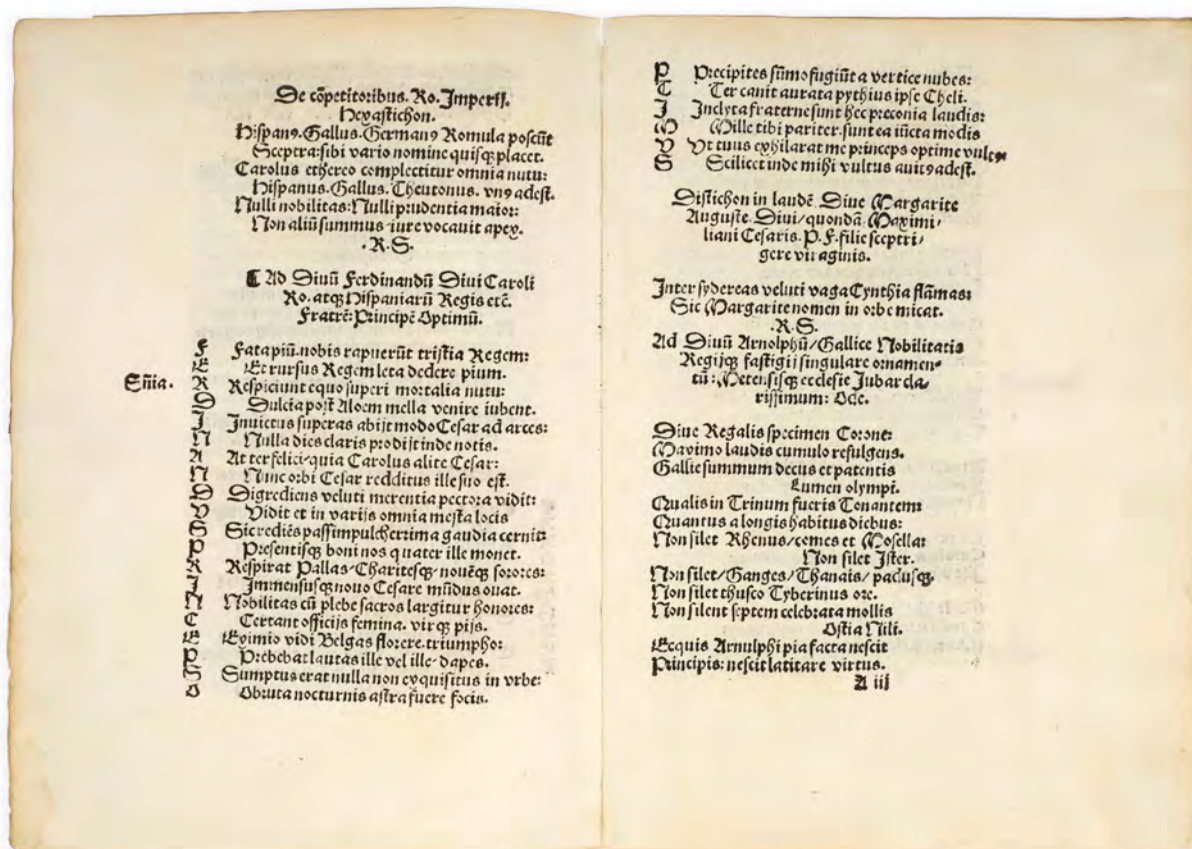 De cōpetitoribus. Ro. Imperij.
Hexastichon.
Hispanꝰ. Gallus. Germanꝰ Romula poscūt
Sceptra: sibi vario nomine quisqꝫ placet.
Carolus ethereo complectitur omnia nutu:
Hispanus. Gallus. Theutonus. vnꝰ adest.
Nulli nobilitas: Nulli prudentia maior:
Non aliū summus iure vocavit apex.
.R.S.
¶ Ad Diuū Ferdinandū Diui Caroli
Ro. atqꝫ Hispaniarū Regis etč.
Fratrē: Principē Optimū.
F Fata piū. nobis rapuerūt tristia Regem:
E Et rursus Regem leta dedere pium.
Sn̄ia. R Respiciunt equo superi mortalia nutu:
D Dulcia post Aloem mella venire iubent.
I Inuictus superas abijt modo Cesar ad arces:
N Nulla dies claris prodijt inde notis.
A At ter felici/ quia Carolus alite Cesar:
N Nunc orbi Cesar redditus ille suo est.
D Digrediens veluti merentia pectora vidit:
V Vidit et in varijs omnia mesta locis
S Sic rediēs passim pulcherrima gaudia cernit:
P Presentisqꝫ boni nos quater ille monet.
R Respirat Pallas/ Charitesqꝫ/ nouēqꝫ sorores:
I Immensusqꝫ nouo Cesare mūdus ouat.
N Nobilitas cū plebe sacros largitur honores:
C Certant officijs femina. virqꝫ pijs.
E Eximio vidi Belgas florere. triumpho:
P Prebebat lautas ille vel ille/ dapes.
S Sumptus erat nulla non exquisitus in vrbe:
O Obruta nocturnis astra fuere focis.
P Precipites sūmo fugiūt a vertice nubes:
T Ter canit aurata pythius ipse Cheli.
I Inclyta fraterne sunt hec preconia laudis:
M Mille tibi pariter. sunt ea iūcta modis
V Vt tuus exhilarat me princeps optime vultꝰ
S Scilicet inde mihi vultus auitꝰ adest.
Distichon in laudē Diue Margarite
Auguste. Diui/ quondā Maximi/
liani Cesaris. P. F. filie sceptri/
gere viraginis.
Inter sydereas veluti vaga Cynthia flāmas:
Sic Margarite nomen in orbe micat.
.R.S.
Ad Diuū Arnolphū/ Gallice Nobilitatis
Regijqꝫ fastigij singulare ornamen/
tū: Metensisqꝫ ecclesie Jubar cla/
rissimum: Ode.
Diue Regalis specimen Corone:
Maximo laudis cumulo refulgens.
Gallie summum decus et patentis
Lumen olympi.
Qualis in Trinum fueris Tonantem:
Quantus a longis habitus diebus:
Non silet Rhenus/ comes et Mosella:
Non silet Ister.
Non silet/ Ganges/ Thanais/ padusqꝫ.
Non silet thusco Tyberinus ore.
Non silent septem celebrata mollis
Ostia Nili.
Ecquis Arnulphi pia facta nescit
Principis: nescit latitare virtus.
A iij